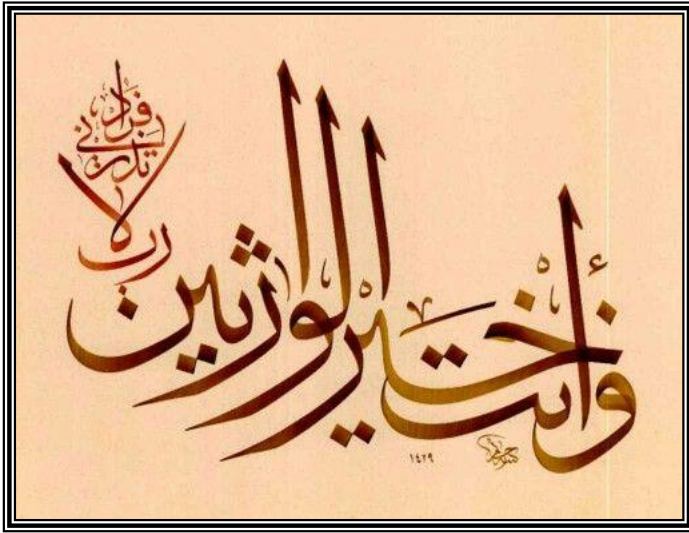 رب لا تذرني فردا
وأنت خير الوارثين
١٤٢٩